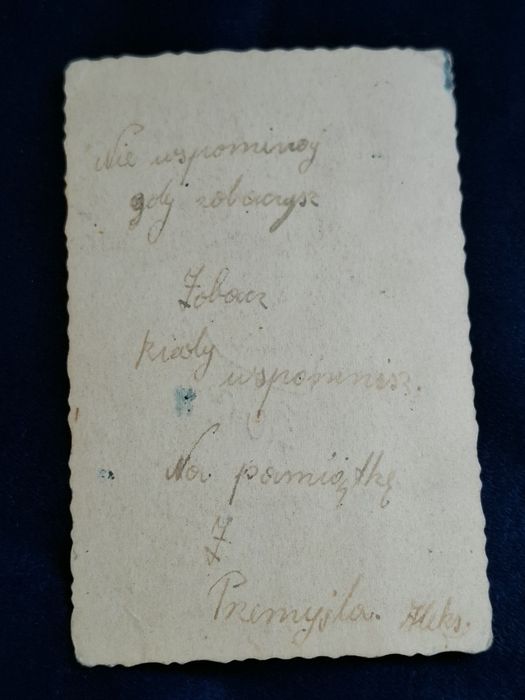 Nie wspominaj
gdy zobaczysz
Zobacz
kiedy
wspomnisz.
Na pamiątkę
Z
Przemyśla. Aleks.